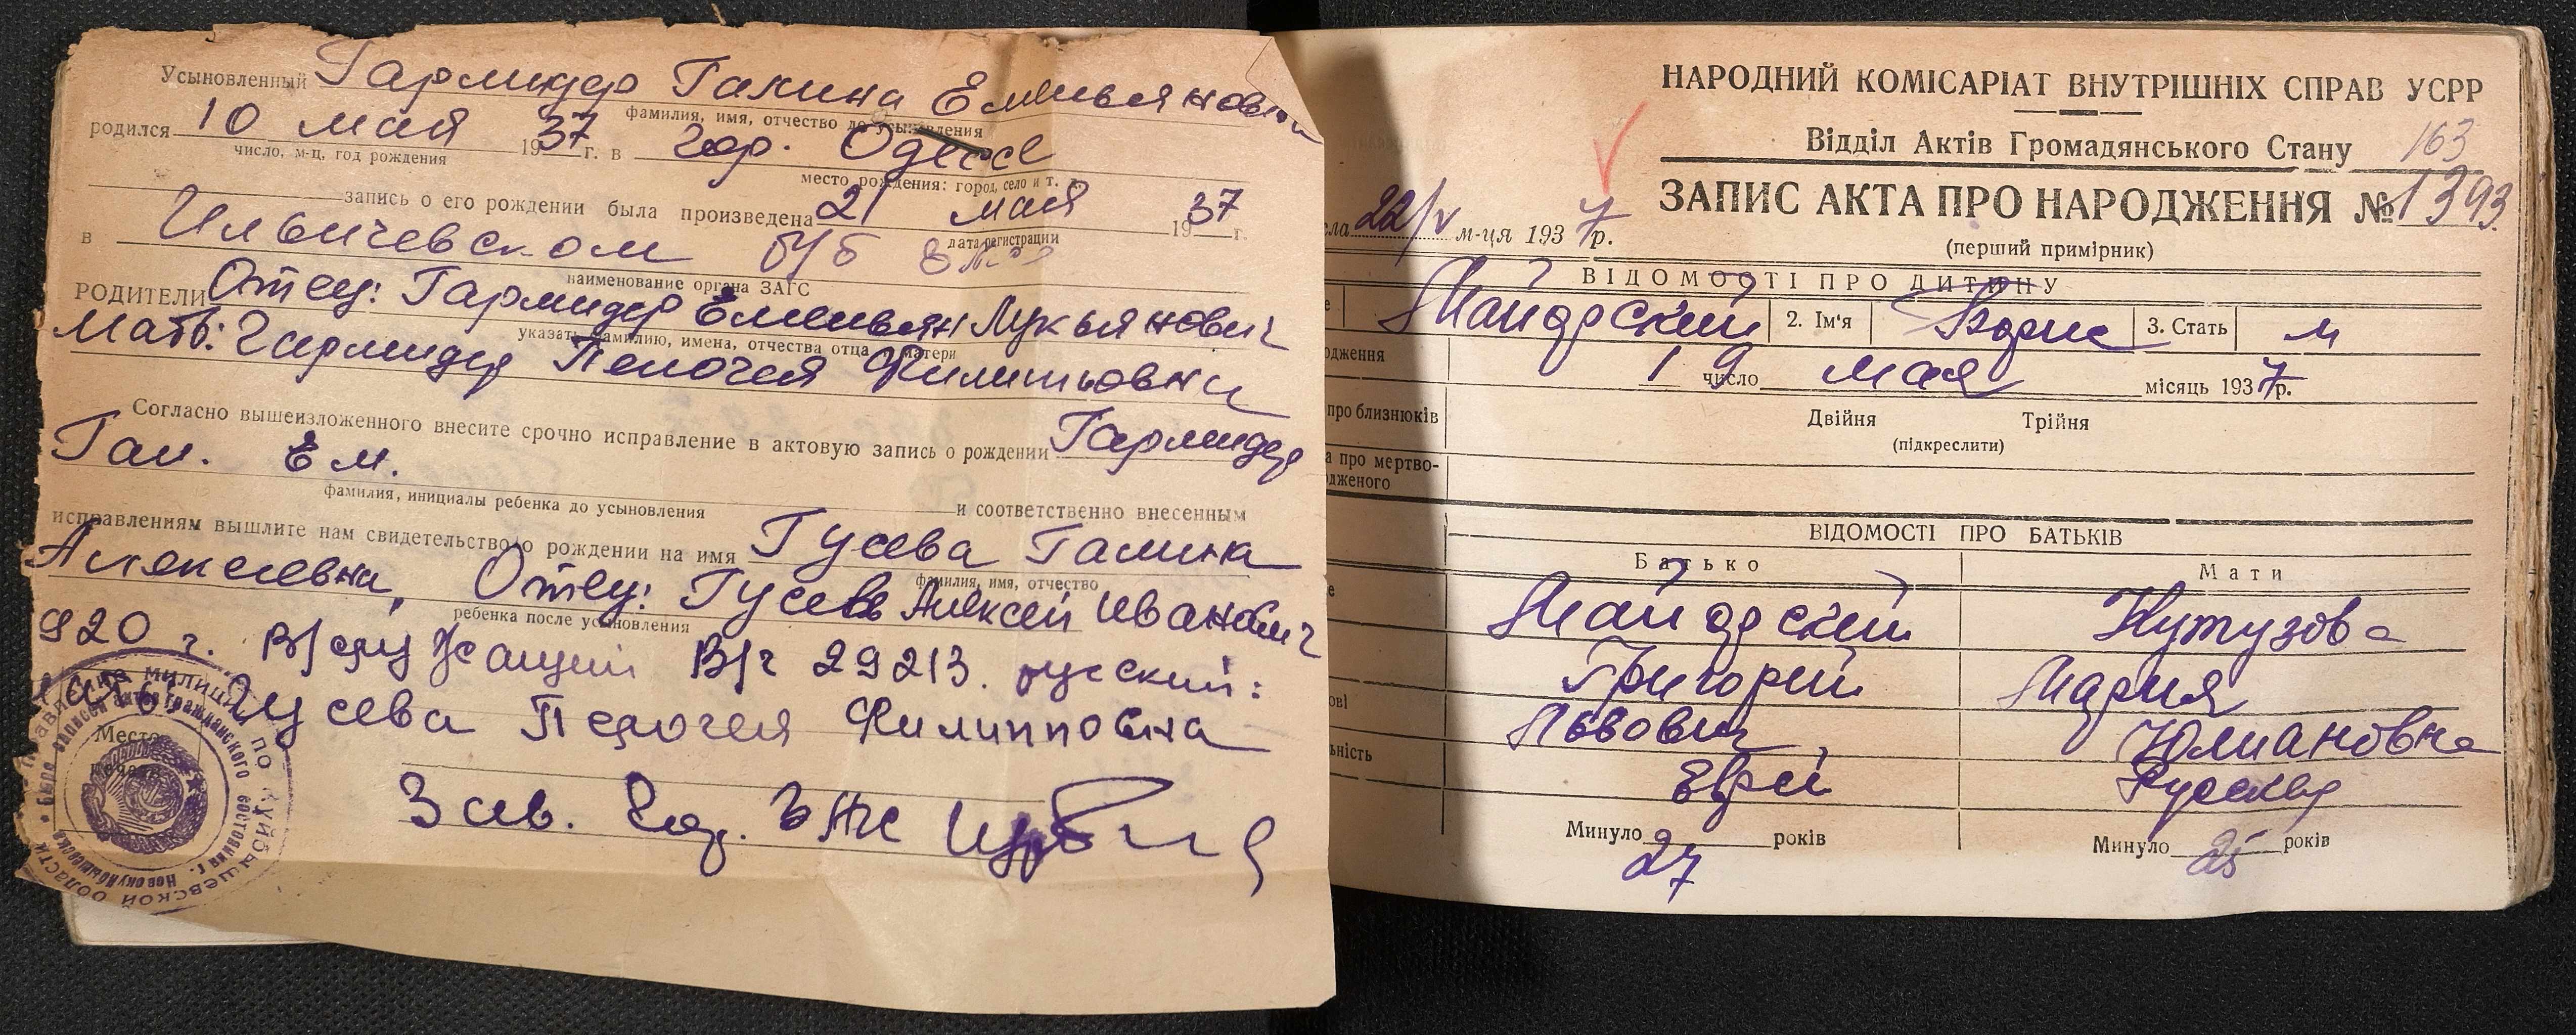 Усыновленный Гармидер Галина Емельяновна
фамилия, имя, отчество до усыновления
родился 10 мая 1937 г. в гор. Одессе
число, м-ц, год рождения
место рождения: город, село и т.
запись о его рождении была произведена 21 мая 1937 г.
дата регистрации
в Ильичевском б/б
наименование органа ЗАГС
РОДИТЕЛИ Отец: Гармидер Емельян Лукьянович
указать фамилию, имена, отчества отца матери
Мать: Гармидер Пелогея Филиповна
Согласно вышеизложенного внесите срочно исправление в актовую запись о рождении Гармидер
Гал. Ем.
фамилия, инициалы ребенка до усыновления
и соответственно внесенным
исправлениям вышлите нам свидетельство о рождении на имя Гусева Галина
фамилия, имя, отчество
Алексеевна, Отец: Гусев Алексей Иванович
ребенка после усыновления
920 г. В/служащий В/ч 29213. русский:
Мать: Гусева Пелогея Филипповна
Место
печати
Зав. Гор. ЗАГС
НАРОДНИЙ КОМІСАРІАТ ВНУТРІШНІХ СПРАВ УСРР
Відділ Актів Громадянського Стану 163
ЗАПИС АКТА ПРО НАРОДЖЕННЯ № 1393.
(перший примірник)
сла 22/V м-ця 1937 р.
ВІДОМОСТІ ПРО ДИТИНУ
е Майорский 2. Ім'я Борис 3. Стать м
одження 19 число мая місяць 1937 р.
про близнюків Двійня Трійня
(підкреслити)
а про мертво-
дженого
ВІДОМОСТІ ПРО БАТЬКІВ
Батько Мати
е Майорский Кутузова
Григорий Мария
ові Львович Юлиановна
ьність Еврей Русская
Минуло 27 років Минуло 25 років